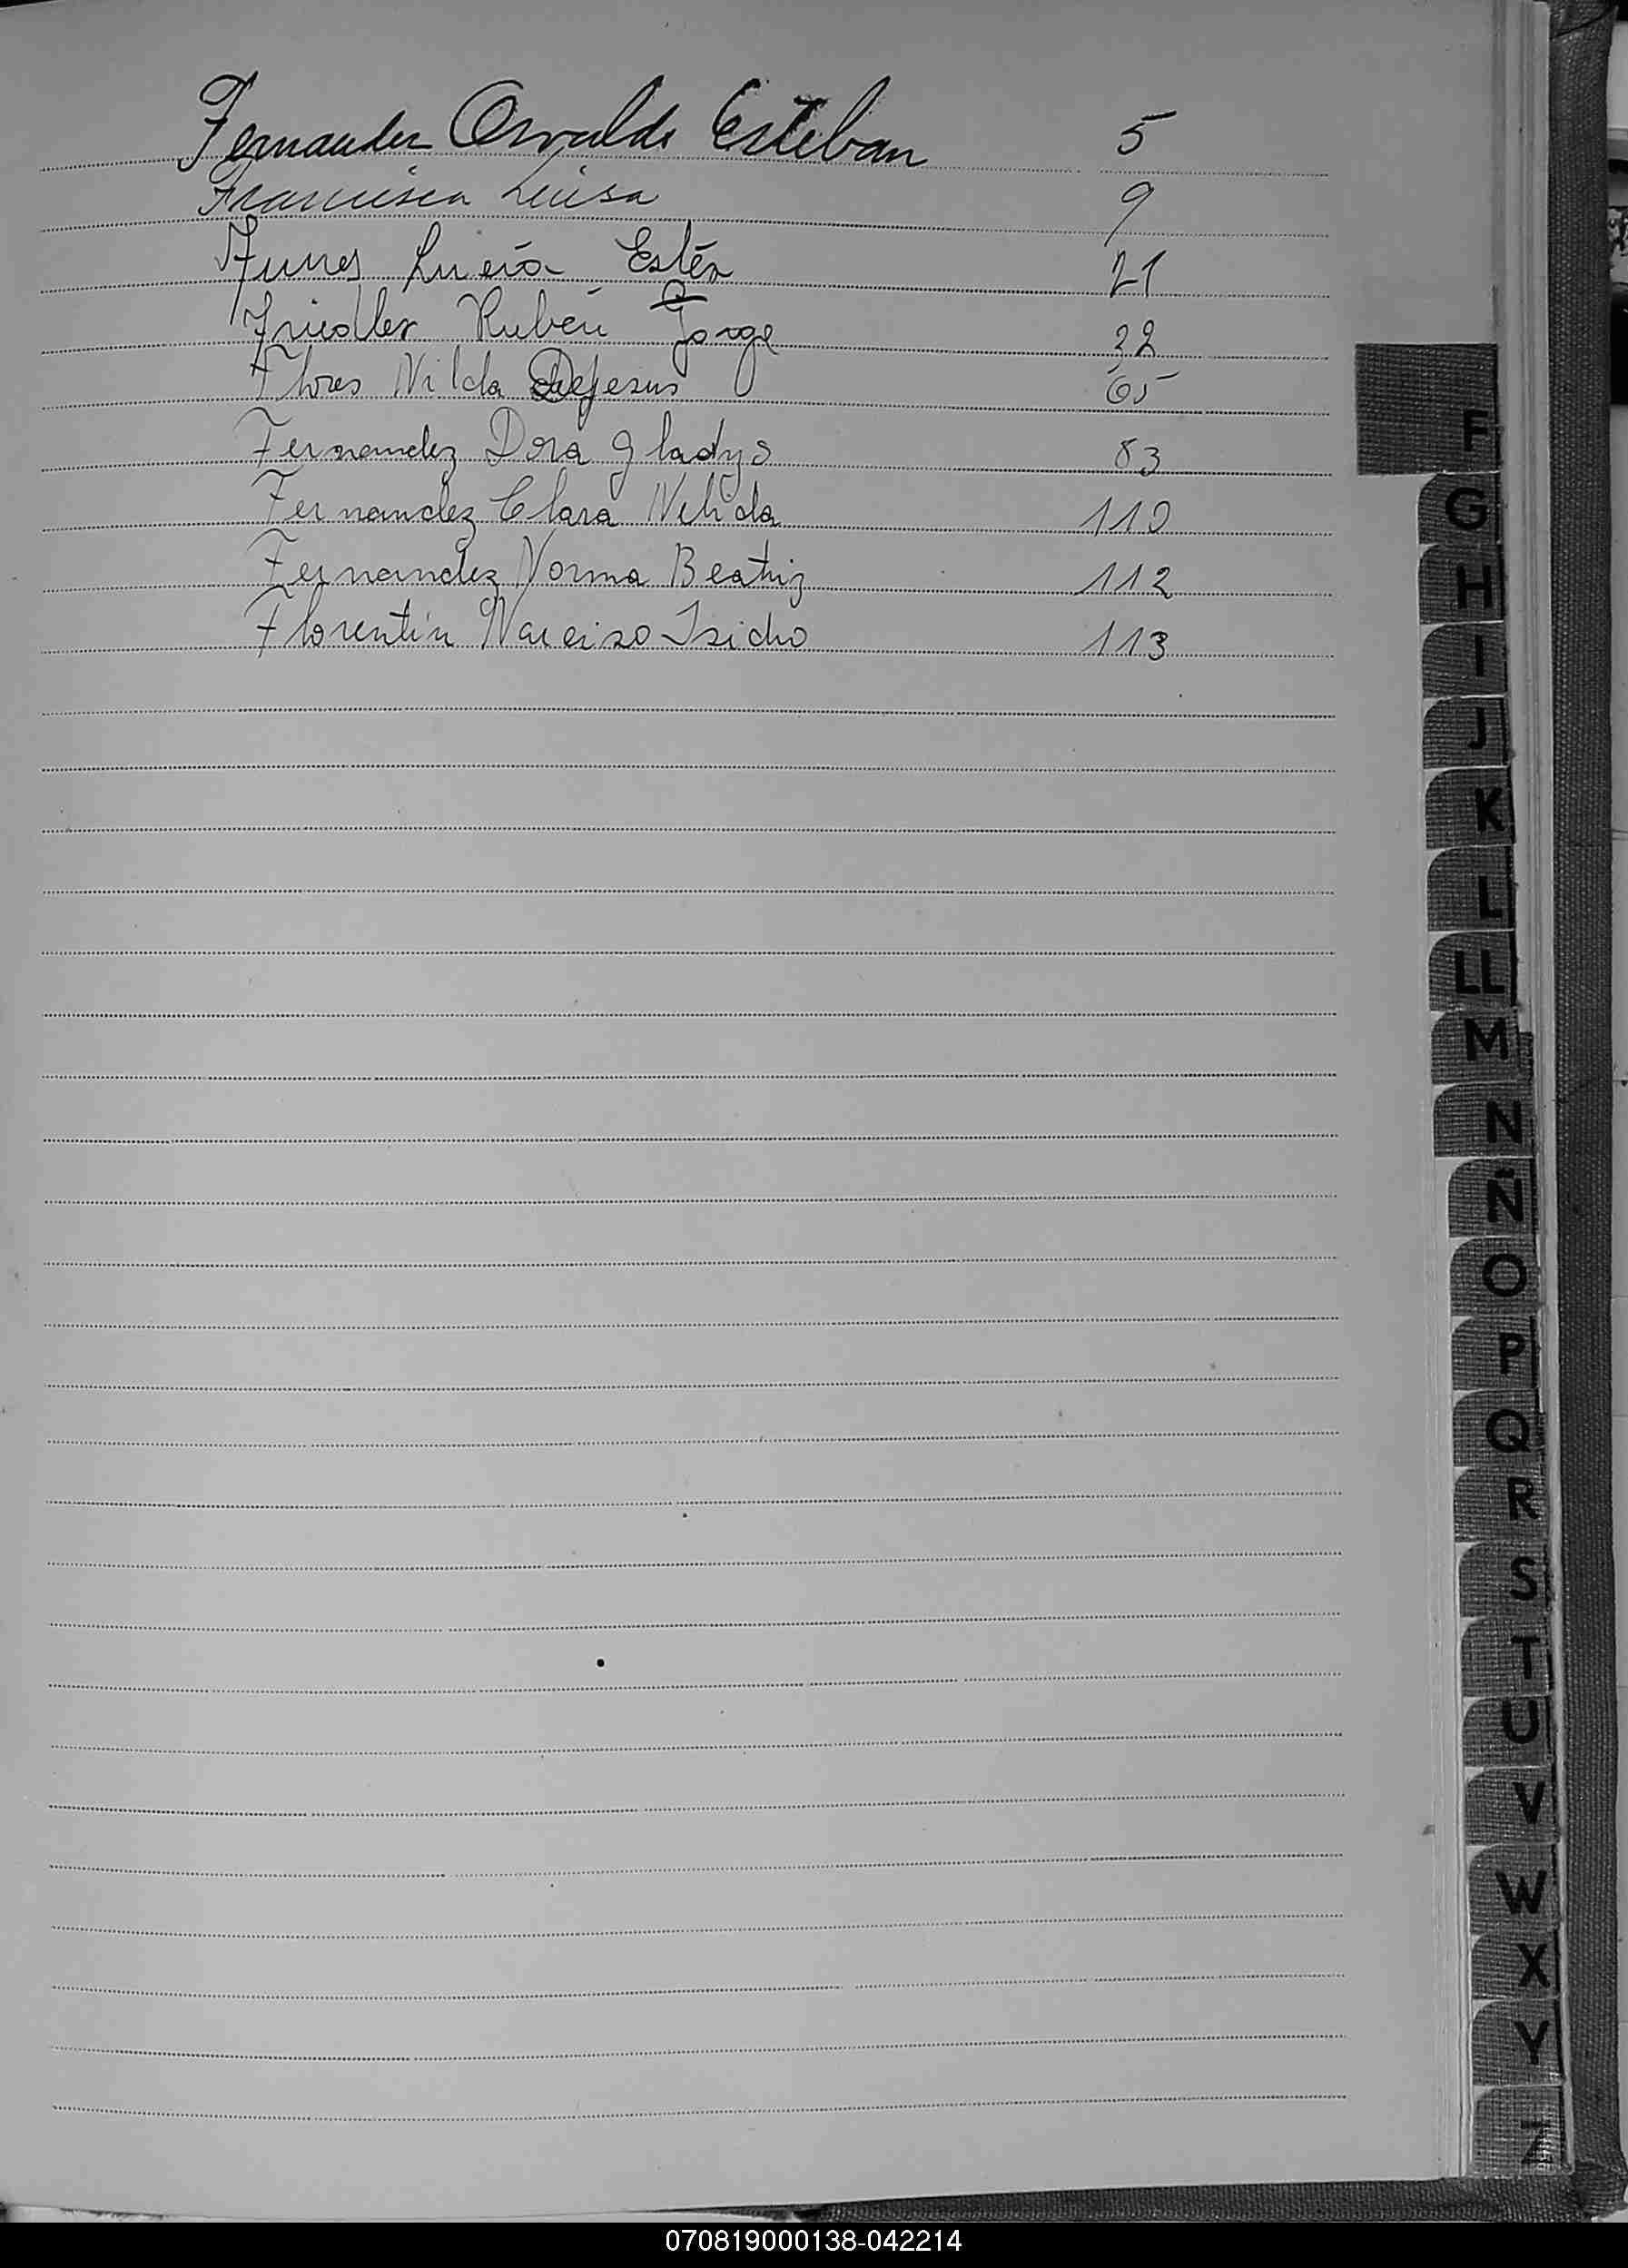 Fernandez Osvaldo Esteban 5
Francisca Luisa 9
Funes Lucía Estér 21
Friedler Rubén Jorge 32
Flores Nilda Dejesus 65
Fernandez Dora Gladys 83
Fernandez Clara Nelida 110
Fernandez Norma Beatriz 112
Florentín Narciso Isidro 113
F
G
H
I
J
K
L
LL
M
N
Ñ
O
P
Q
R
S
T
U
V
W
X
Y
Z
070819000138-042214